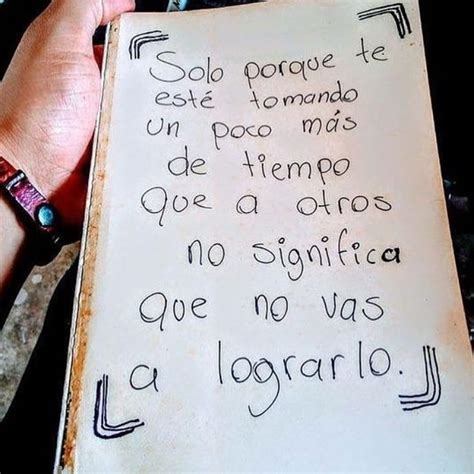 Solo porque te
esté tomando
un poco más
de tiempo
que a otros
no significa
que no vas
a lograrlo.